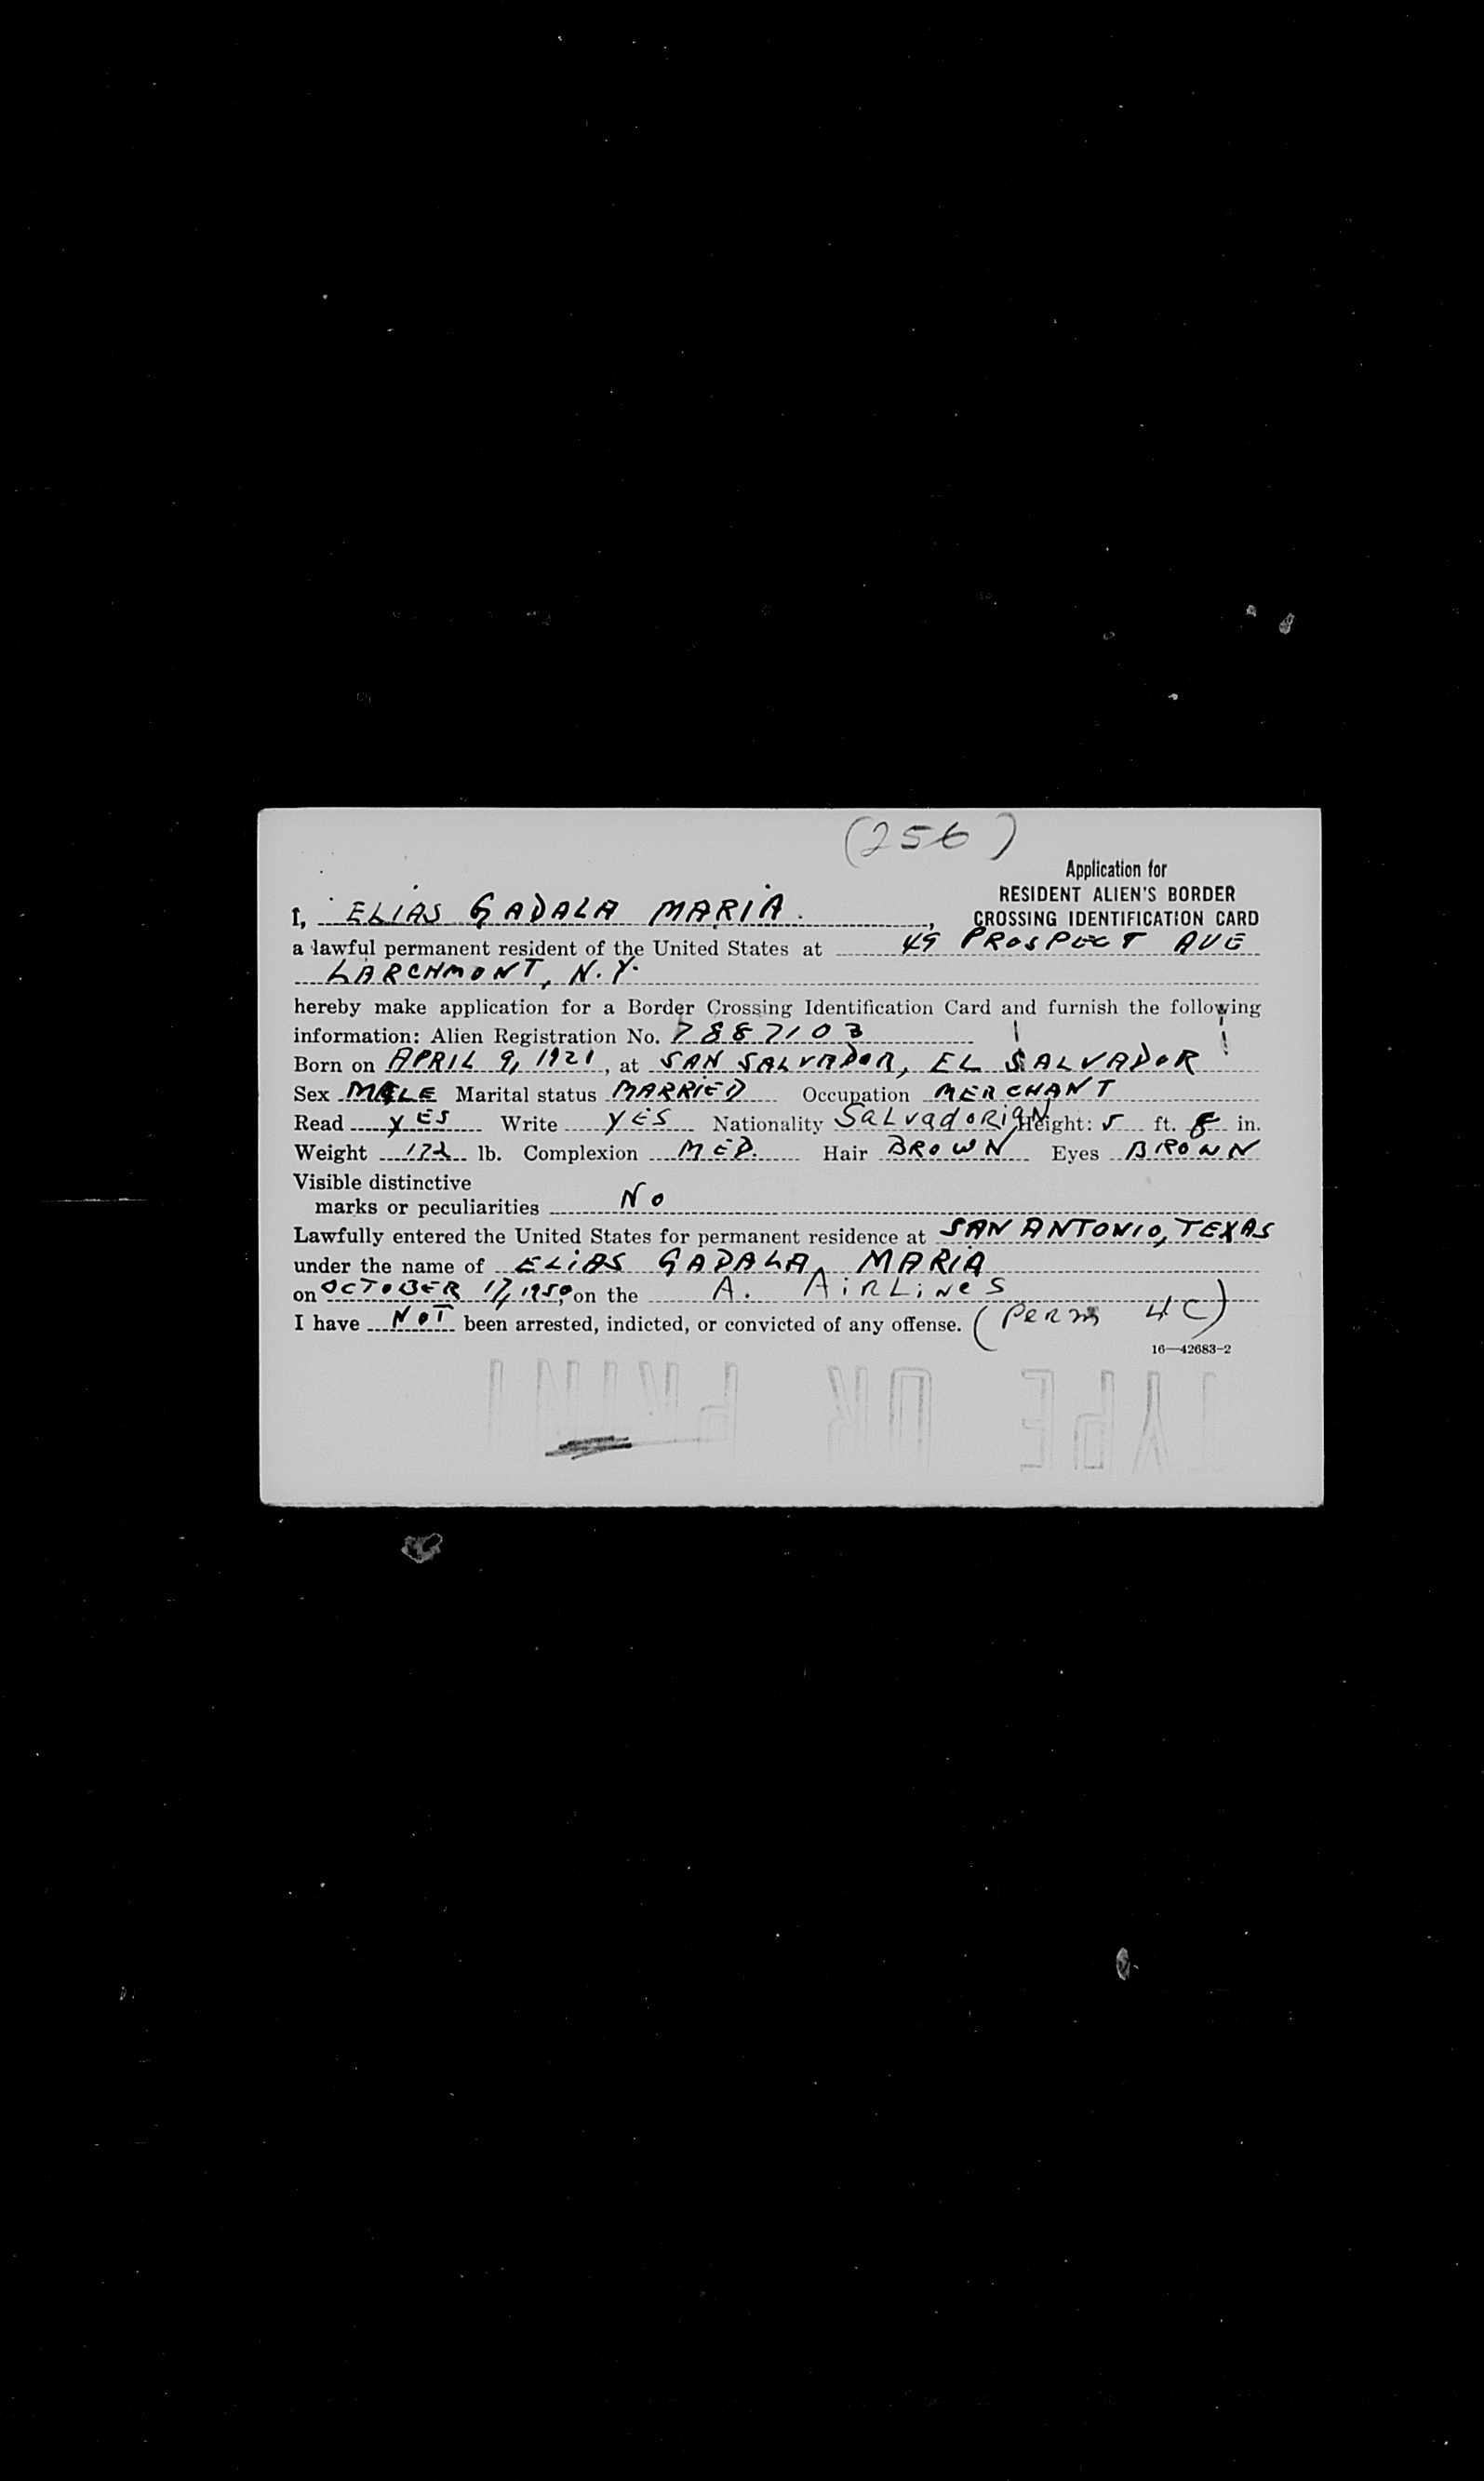 (256)
Application for
RESIDENT ALIEN'S BORDER
CROSSING IDENTIFICATION CARD
I, ELIAS GADALA MARIA,
a lawful permanent resident of the United States at 49 PROSPECT AVE
LARCHMONT, N.Y.
hereby make application for a Border Crossing Identification Card and furnish the following
information: Alien Registration No. 7887103
Born on APRIL 9, 1921, at SAN SALVADOR, EL SALVADOR
Sex MALE Marital status MARRIED Occupation MERCHANT
Read YES Write YES Nationality SALVADORIAN Height: 5 ft. 8 in.
Weight 172 lb. Complexion MED. Hair BROWN Eyes BROWN
Visible distinctive
marks or peculiarities No
Lawfully entered the United States for permanent residence at SAN ANTONIO, TEXAS
under the name of ELIAS GADALA MARIA
on OCTOBER 17, 1950, on the A. AIRLINES
I have NOT been arrested, indicted, or convicted of any offense. (PERM 4C)
16—42683-2
TYPE OR PRINT